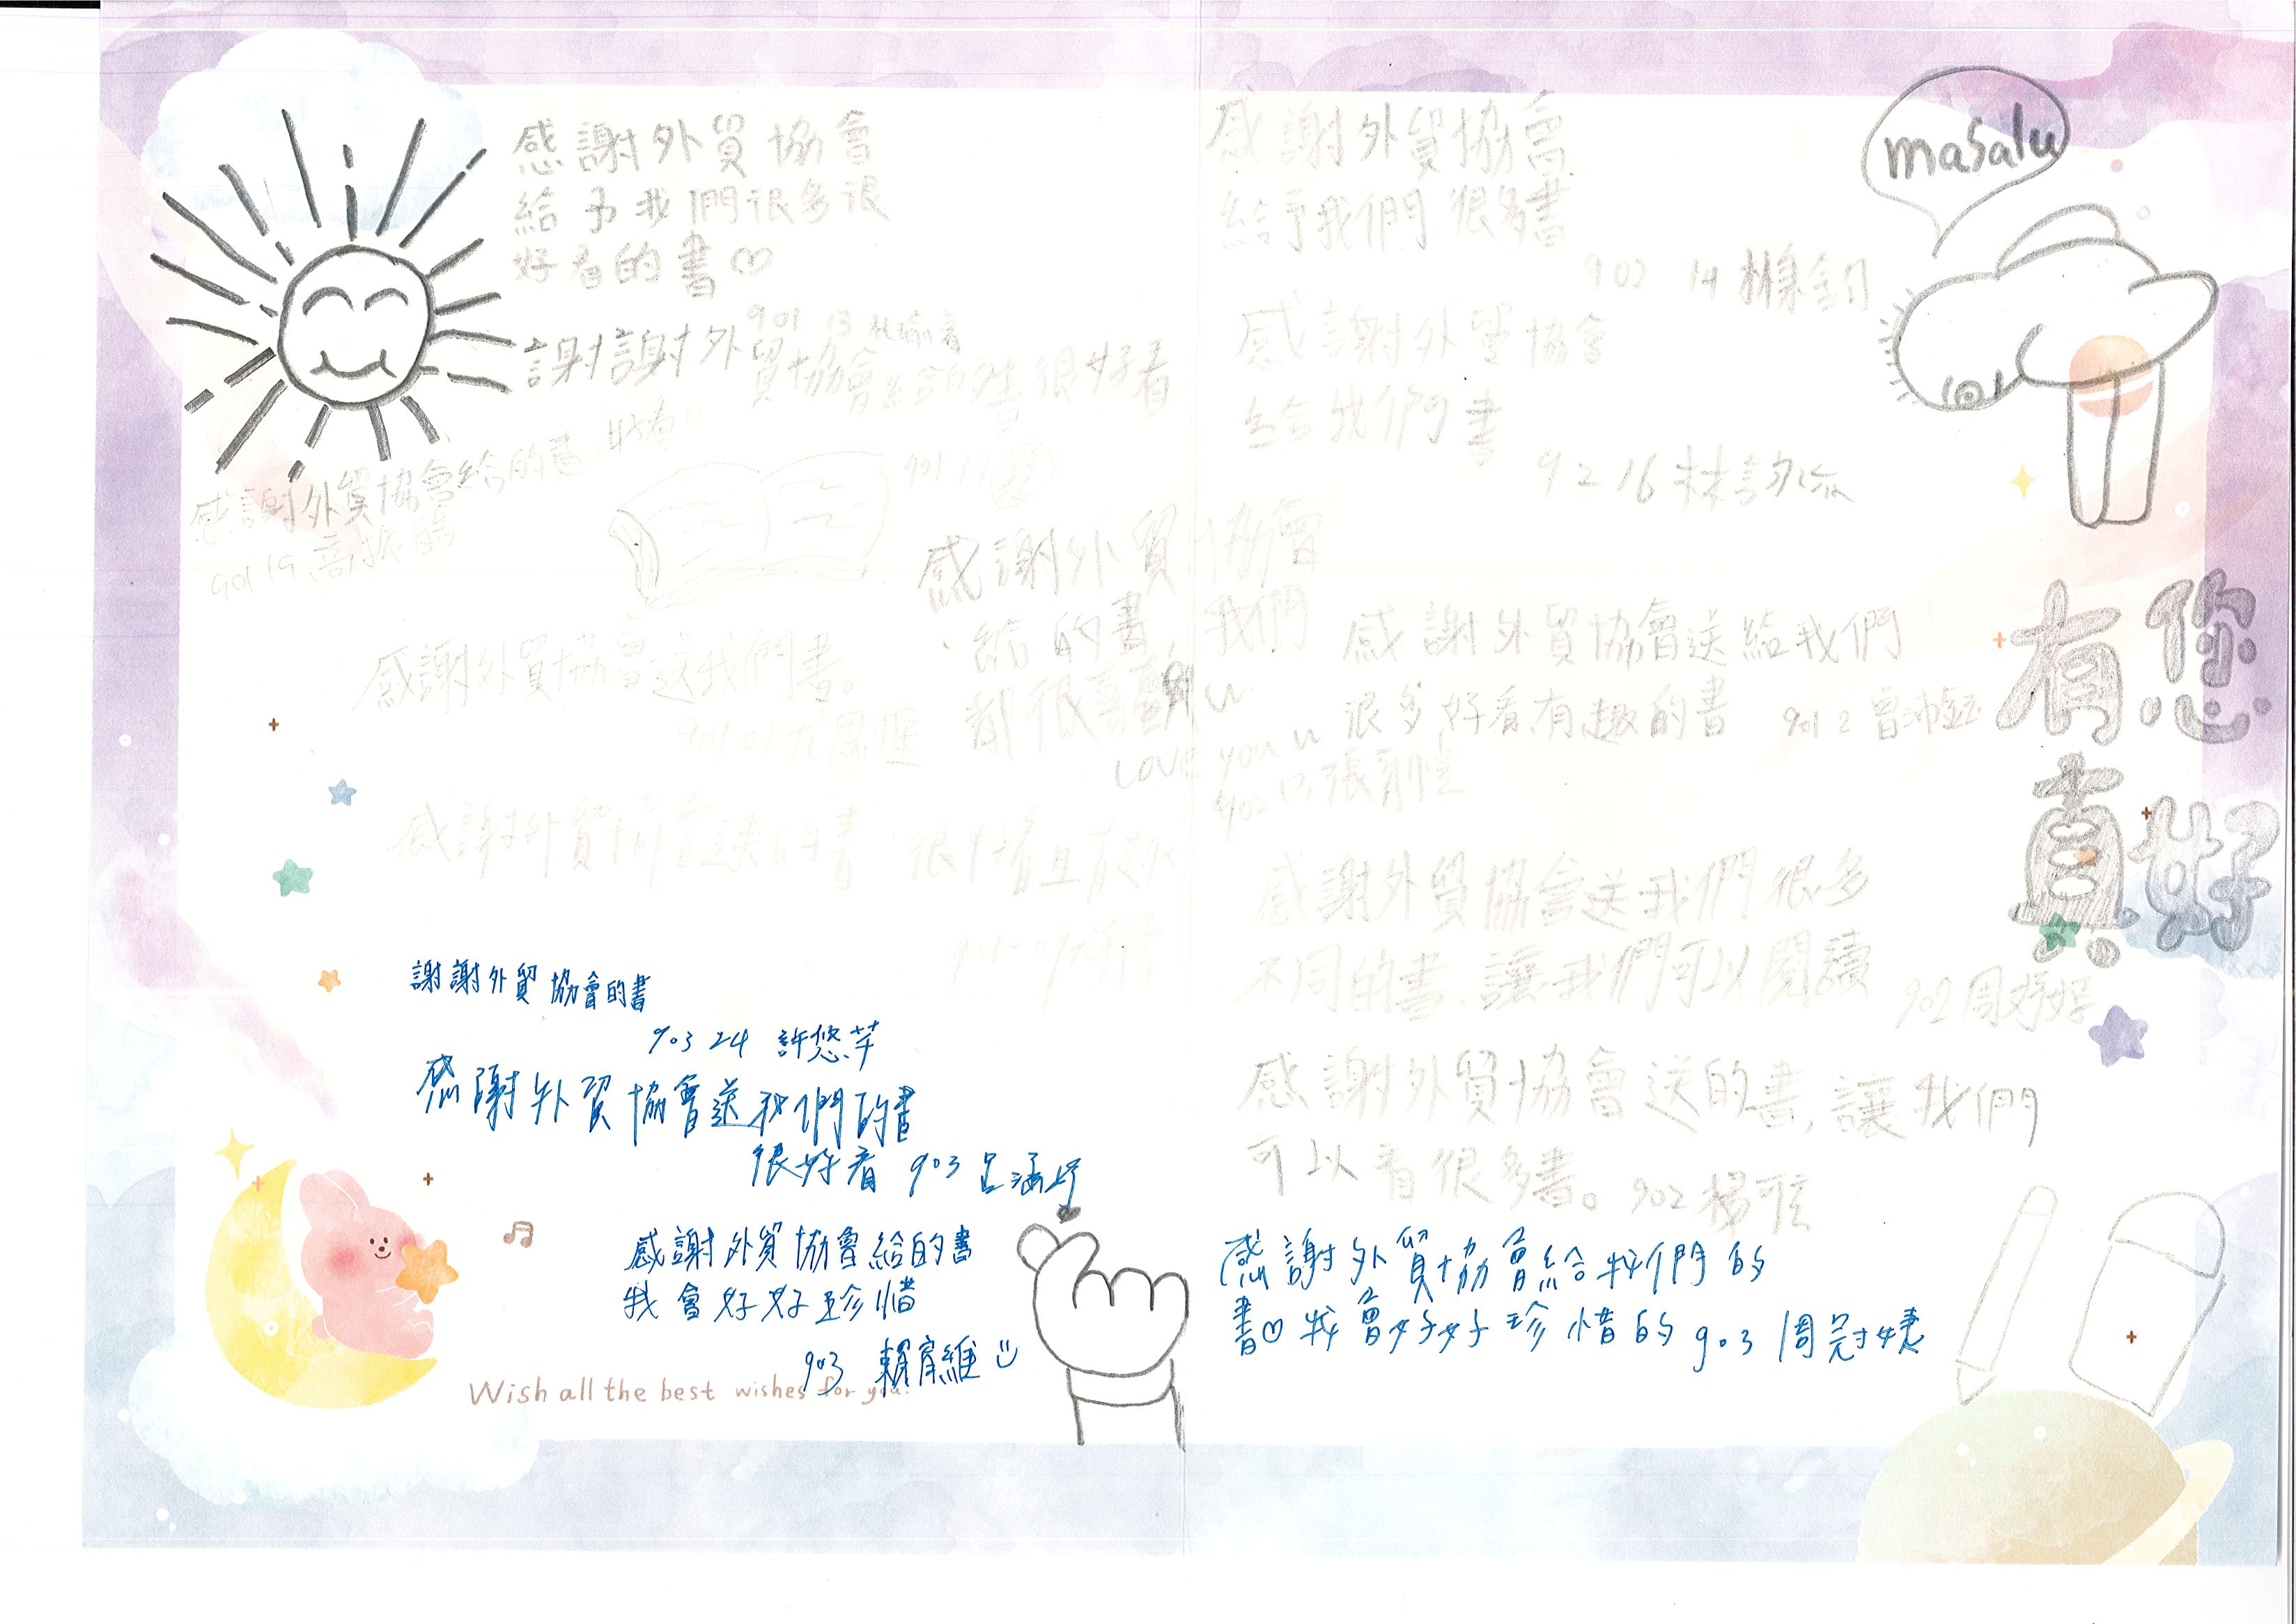 感謝外貿協會
給予我們很多很
好看的書♡
901 13
謝謝外貿協會給的書很好看
901 17
感謝外貿協會給的書 好看
901 19
感謝外貿協會
給的書,我們
都很喜歡
Love you
902 13 張
感謝外貿協會送我們書。
901 01 尤思
感謝外貿協會送的書 很好看且有趣
謝謝外貿協會的書
903 24 許悠芊
感謝外貿協會送我們的書
很好看 903 呂涵
感謝外貿協會給的書
我會好好珍惜
903 賴甯維
Wish all the best wishes for you.
感謝外貿協會
給予我們很多書
902 14
masalu
感謝外貿協會
給我們書
92 16 林
感謝外貿協會送給我們
很多好看有趣的書 901 2 曾沛鈺
有您
真好
感謝外貿協會送我們很多
不同的書,讓我們可以閱讀
902 周妤
感謝外貿協會送的書,讓我們
可以看很多書。902 楊
感謝外貿協會給我們的
書♡我會好好珍惜的 903 周冠婕